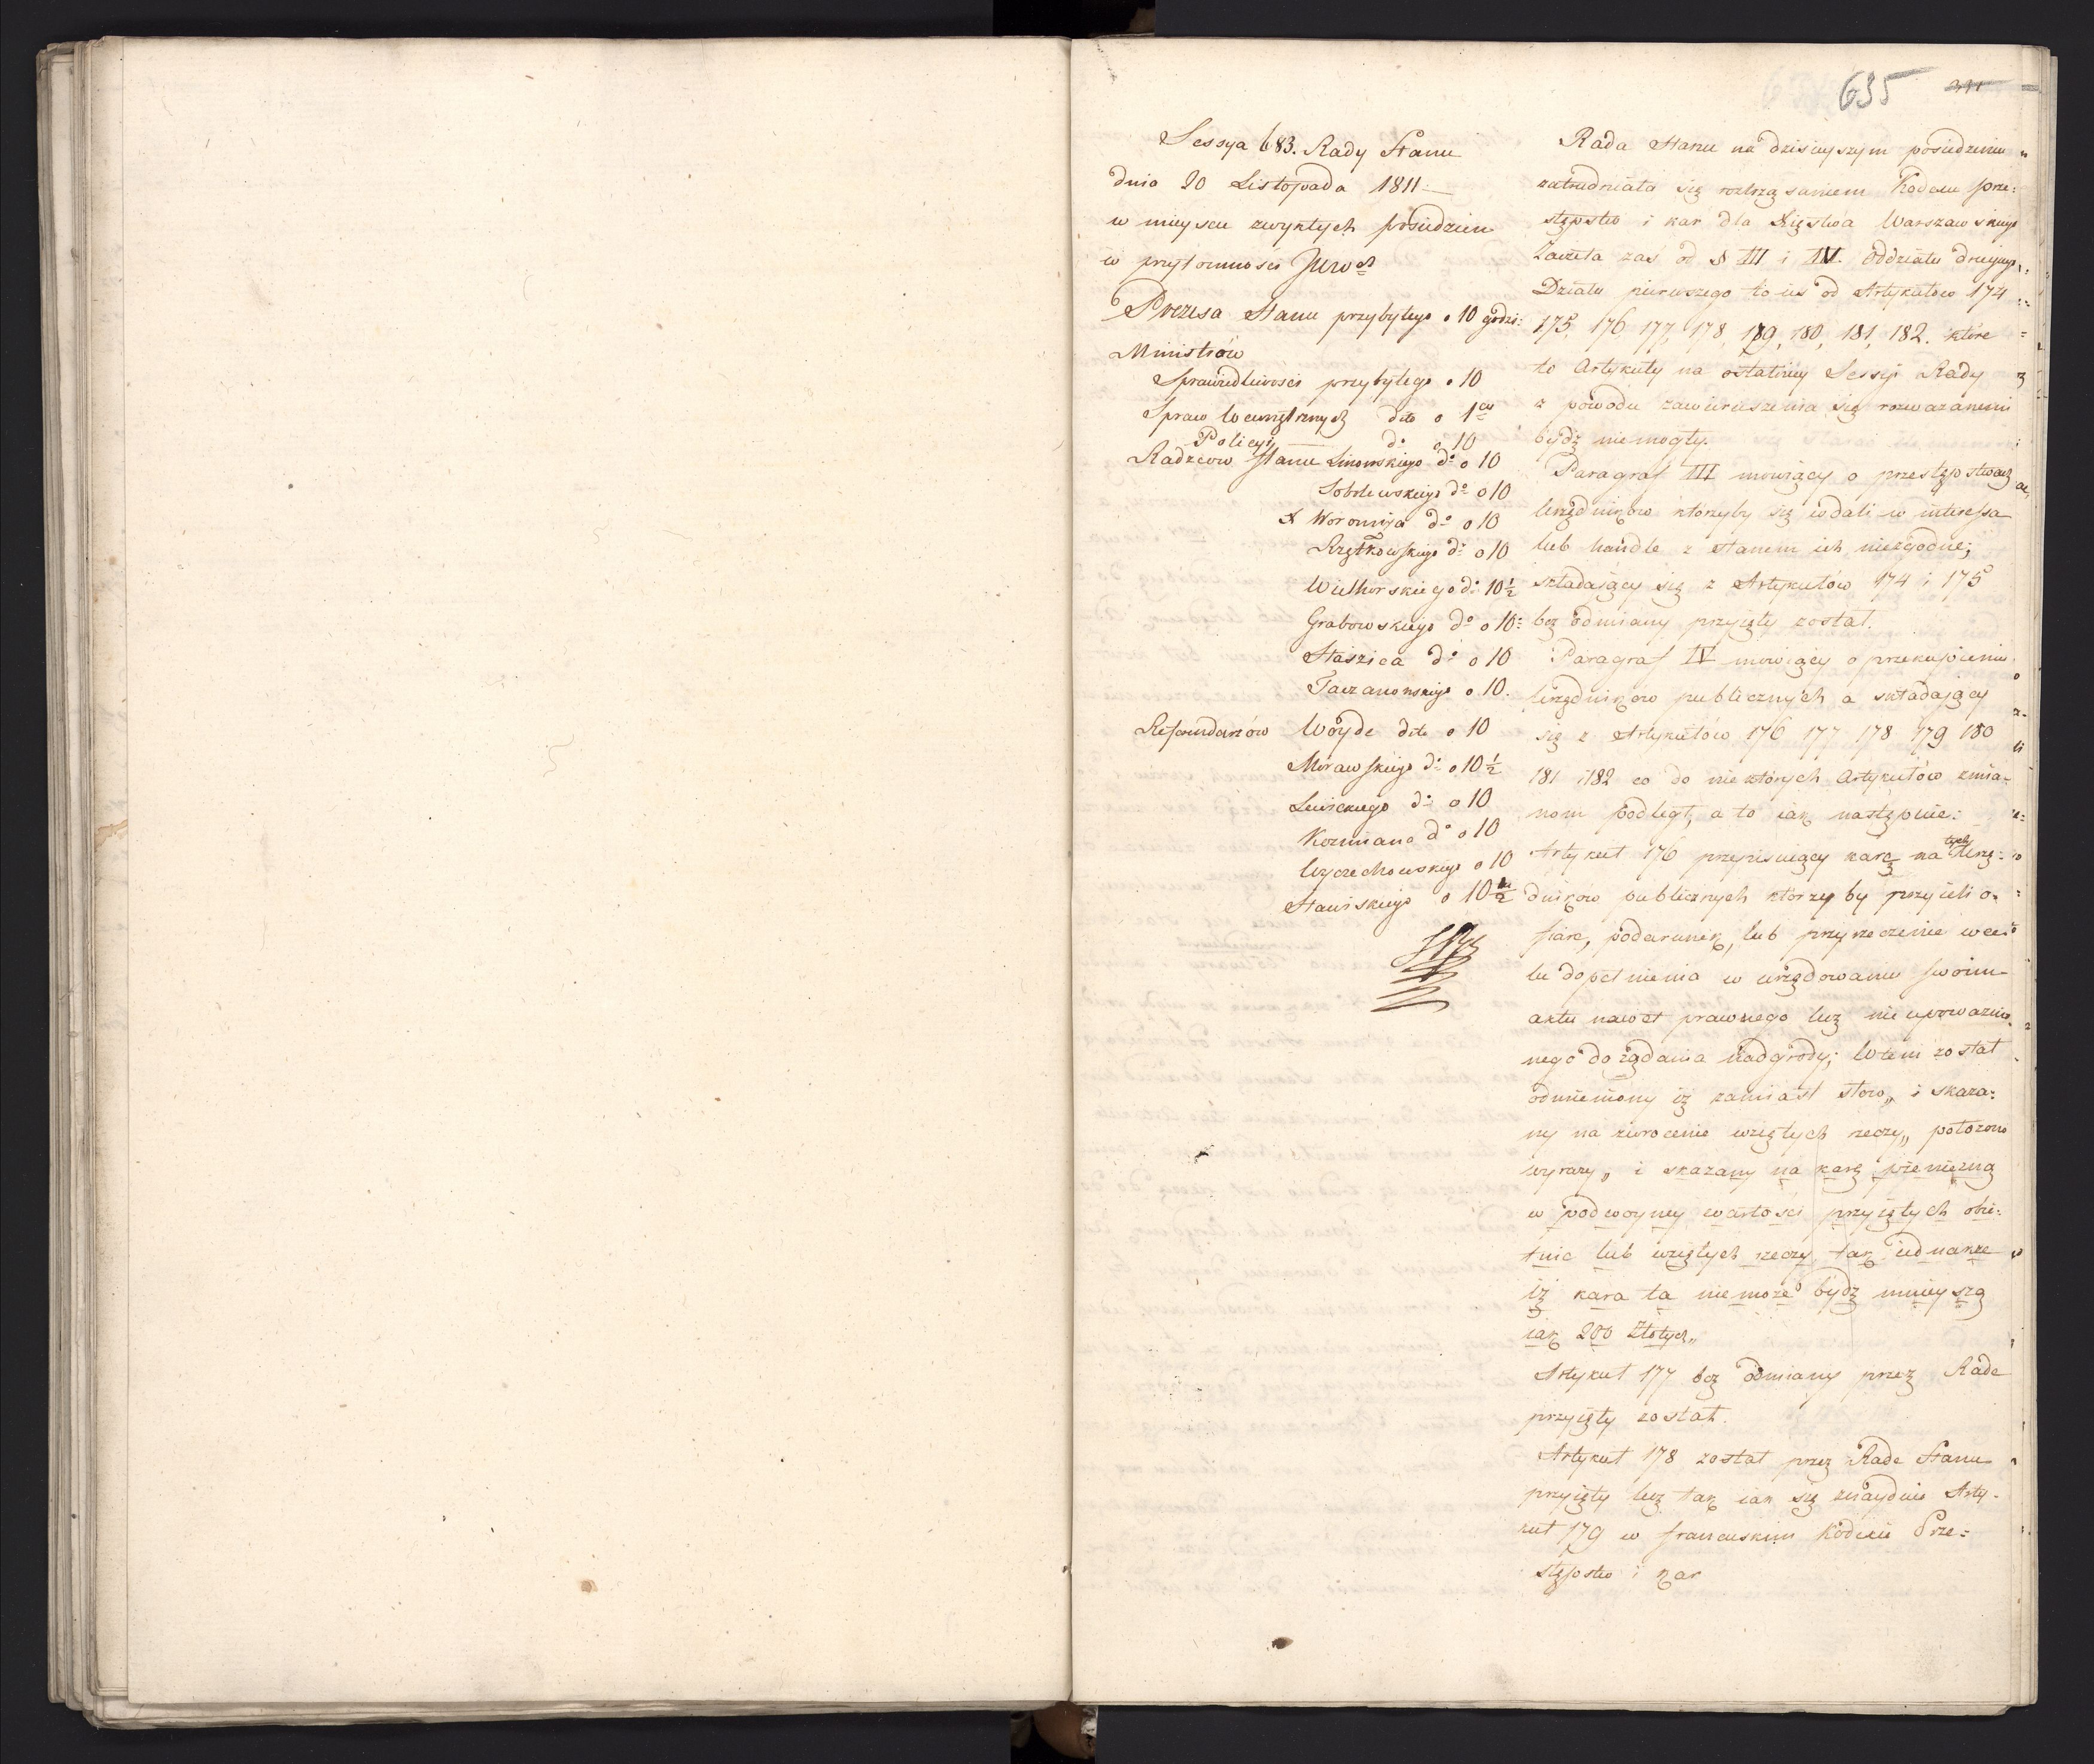 635 211
Sessya 683. Rady Stanu
dnia 20 Listopada 1811
w mieyscu zwykłych posiedzien
w przytomnosci JWW
Prezesa Stanu przybyłego o 10 godzi:
Ministrów
Sprawiedliwosci przybyłego o 10
Spraw Wewnętrznych dto o 1
Policyi do o 10
Radzcow Stanu Linowskiego do o 10
Sobolewskiego do o 10
X Woronicza do o 10
Rzętkowskiego do o 10
Wielhorskiego do 10 1/2
Grabowskiego do o 10
Staszica do o 10
Taczanowskiego o 10.
Referendarzów Woyde dto o 10
Morawskiego do o 10 1/2
Lewickiego do o 10
Kozmiana do o 10
Wyczechowskiego o 10
Stawiskiego o 10 1/2
Rada Stanu na dzisieyszym posiedzeniu
zatrudniała się roztrząsaniem Kodexu prze:
stępstw i kar dla Xięstwa Warszawskiego
Zaczęła zas od § III i IV. Oddziału drugiego
Działu pierwszego to ies od Artykułow 174
175, 176, 177, 178, 179, 180, 181, 182. które
to Artykuły na ostatniey Sessyi Rady
z powodu zawieruszenia się rozważanemi
bydz niemogły.
Paragraf III mowiący o przestępstwach
Urzędnikow którzyby się wdali w interessa
lub handle z stanem ich niezgodne;
składaiący się z Artykułów 174 i 175
bez odmiany przyięty został.
Paragraf IV mowiący o przekupieniu
Urzędnikow publicznych a składaiący
się z Artykułów 176 177 178 179 180
181 i 182 co do niektórych Artykułów zmia:
nom podległ, a to iak następuie:
Artykuł 176 przepisuiący karę na tych Urzę:
dnikow publicznych którzy by przyieli o:
fiarę, podarunek, lub przyrzeczenie w ce:
lu dopełnienia w urzędowaniu swoim
aktu nawet prawnego lecz nie upoważnio:
nego do żądania nadgrody; w tem został
odmieniony iż zamiast słow „ i skaza:
ny na zwrocenie wziętych rzeczy „ położono
wyrazy „ i skazany na karę pieniężną
w podwoyney wartości przyiętych obie:
tnic lub wziętych rzeczy tak iednakże
iż kara ta niemoże bydz mnieysza
iak 200 Złotych „
Artykuł 177 bez odmiany przez Radę
przyięty został.
Artykuł 178 został przez Radę Stanu
przyięty lecz tak iak się znayduie Arty:
kuł 179 w francuskim Kodexie Prze:
stępstw i kar